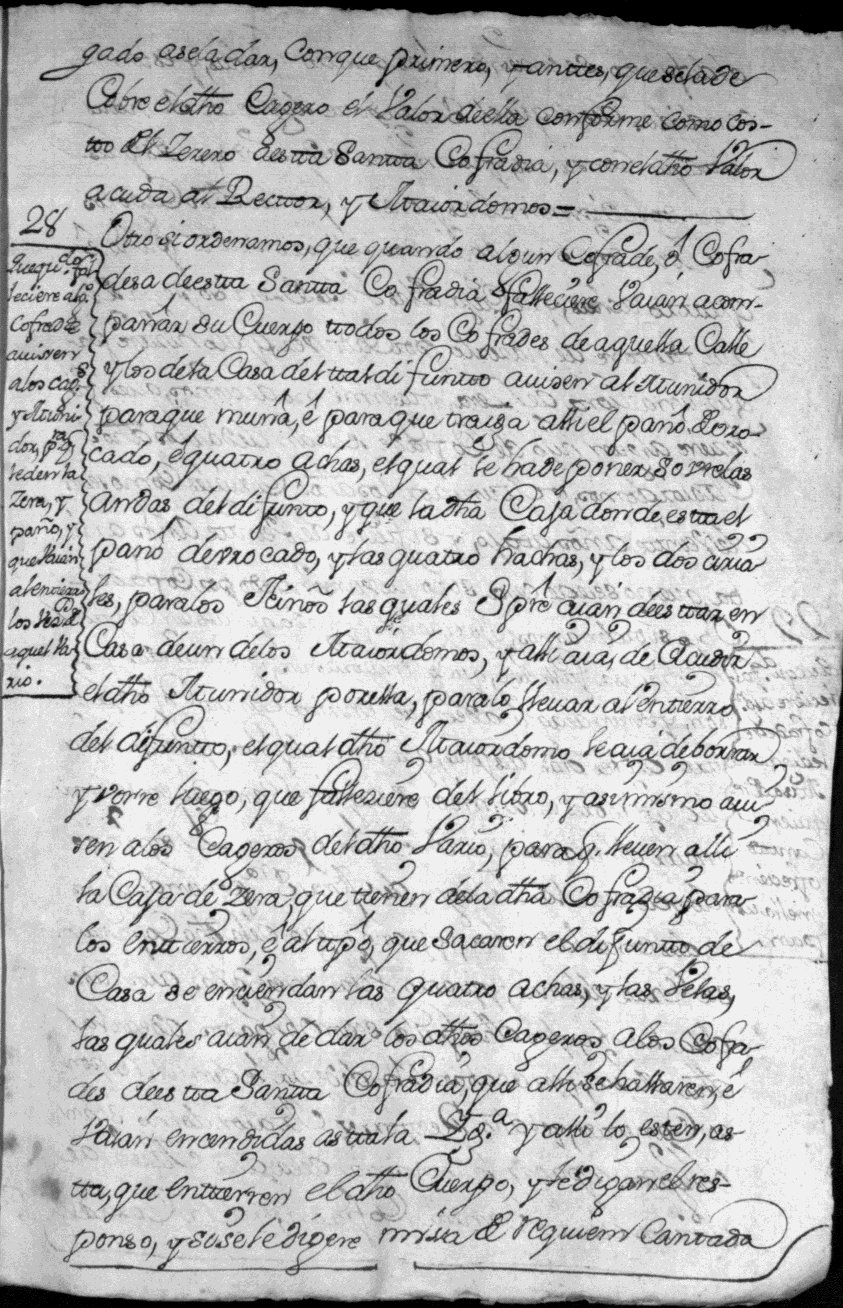 gado aseladar, Conque primero, y anttes, que sela de
Cobre el dho Cagero el Valor deella conforme como cos-
tto el Zerero destta Santta Cofradia, y con el dho Valor
acuda al Recttor, y Maiordomos =
28
Otro si ordenamos, que quando algun Cofrade, ó Cofra-
desa deestta Santta Cofradia falleciere Vaián acom-
pañar su Cuerpo ttodos los Cofrades de aquella Calle
y los de la Casa del ttal difuntto avisen al Munidor
para que muña, é para que traiga alli el paño de vro-
cado, é quatro achas, el qual se ha de poner sovre las
andas del difunto, y que la dha Casa donde, estta el
paño de vrocado, y las quatro hachas, y los dos ciria
les, para los Niños las quales Spre aián de esttar en
Casa de un de los Maiordomos, y alli aiá, de Acudir
el dho Munidor por ella, para lo llevar al enttierro
del difuntto, el qual dho Maiordomo le aiá de borrar
y vorre luego, que falleziere del libro, y asimismo avi
sen alos Cageros del dho Vario, para q. lleven alli
la Caja de Zera, que tienen de la dha Cofradia para
los enttierros, é al tipo, que sacaren el difuntto de
Casa se enciendan las quatro achas, y las Velas,
las quales aian de dar los dhos Cageros a los Cofra-
des deestta Santta Cofradia, que alli se hallaren, é
Vaián encendidas asttala Yg.ª y alli lo estén, as-
tta, que enttierren el dho Cuerpo, y le digan el res-
ponso, y si se le digere missa de requiem Cantada
Que qu.do fal
leciere alg.
Cofrade
avisen
a los cag.s
y Muni-
dor, p.ra q
le den la
Zera, y
paño, y
que Vaian
al entierro
los Vez.os de
aquel Va-
rio.